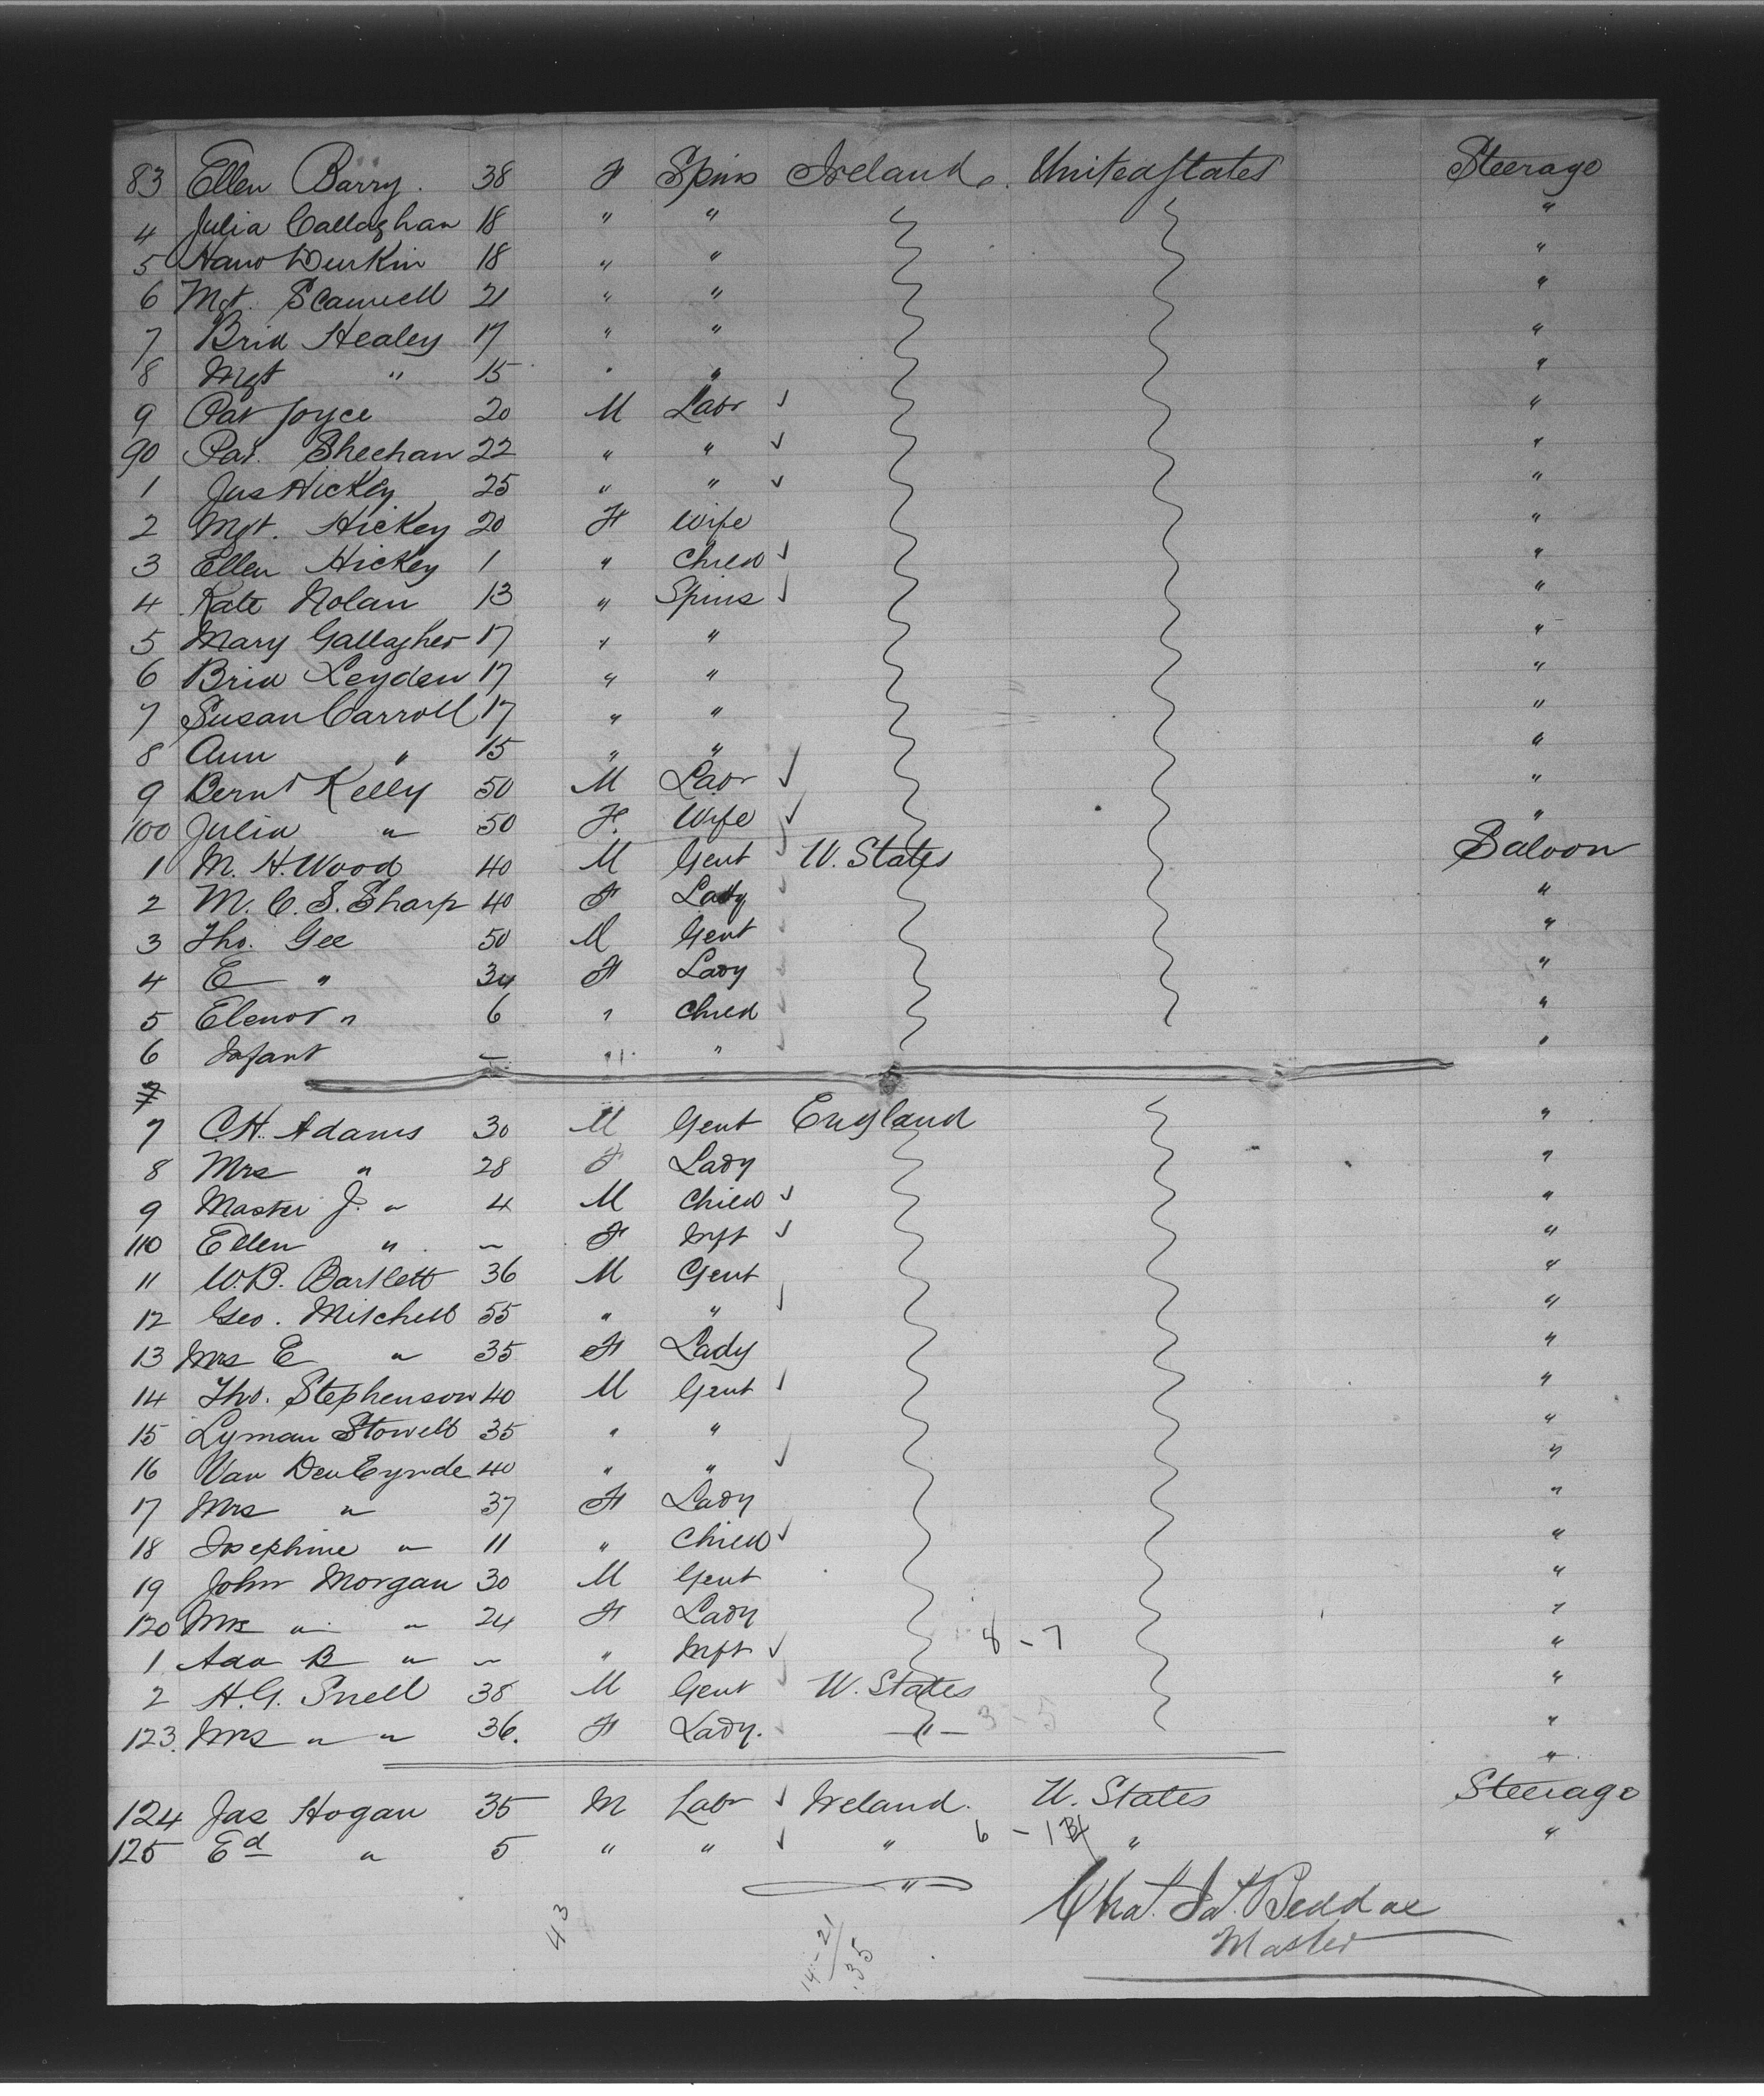 83 Ellen Barry. 38 F Spins Ireland. United States Steerage
4 Julia Callaghan 18 " " "
5 Durkin 18 " " "
6 Mgt. Scannell 21 " " "
7 Brid Healey 17 " " "
8 Mgt " 15 " " "
9 Pat Joyce 20 M Labr "
90 Pat. Sheehan 22 " " "
1 Jas Hickey 25 " " "
2 Mgt. Hickey 20 F Wife "
3 Ellen Hickey 1 " Child "
4 Kate Nolan 13 " Spins "
5 Mary Gallagher 17 " " "
6 Brid Leyden 17 " " "
7 Susan Carroll 17 " " "
8 Ann " 15 " " "
9 Bernd Kelly 50 M Labr "
100 Julia " 50 F. Wife "
1 M. H. Wood 40 M Gent U. States Saloon
2 M. C. S. Sharp 40 F Lady "
3 Tho. Gee 50 M Gent "
4 E " 34 F Lady "
5 Elenor " 6 " Child "
6 Infant — " " "
7
7 C.H. Adams 30 M Gent England "
8 Mrs " 28 F Lady "
9 Master J. " 4 M Child "
110 Ellen " — F Inft "
11 W.B. Bartlett 36 M Gent "
12 Geo. Mitchell 55 " " "
13 Mrs E " 35 F Lady "
14 Tho. Stephenson 40 M Gent "
15 Lyman Stowell 35 " " "
16 Van Den Eynde 40 " " "
17 Mrs " 37 F Lady "
18 Josephine " 11 " Child "
19 John Morgan 30 M Gent "
120 Mrs " " 24 F Lady "
1 Ada B " — " Inft 8 - 7 "
2 H.G. Snell 38 M Gent U. States "
123. Mrs " " 36. F Lady. — " — 3 - 5 "
"
124 Jas Hogan 35 M Labr Ireland. U. States Steerage
125 Ed " 5 " " " 6 - 13 " "
"
Chas. Beddoe
Master
43
14 - 21
35